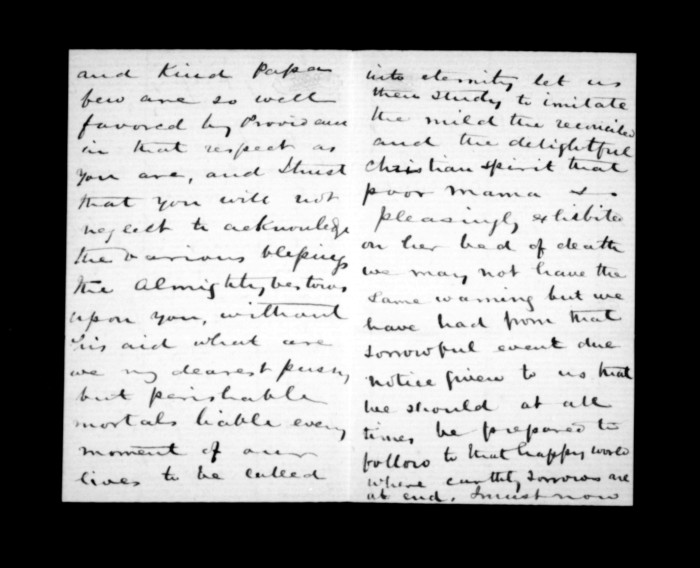 and Kind Papa
few are so well
favored by Providence
in that respect as
you are, and I trust
that you will not
neglect to acknowledge
the various blessings
the Almighty bestows
upon you, without
his aid what are
we my dearest pussy,
but perishable
mortals liable every
moment of our
lives to be called
into eternity let us
then study to imitate
the mild the reconciled
and the delightful
christian spirit that
poor mama so
pleasingly exhibited
on her bed of death
we may not have the
same warning but we
have had from that
sorrowful event due
notice given to us that
we should at all
times be prepared to
follow to that happy world
where earthly sorrows are
at end. I must now